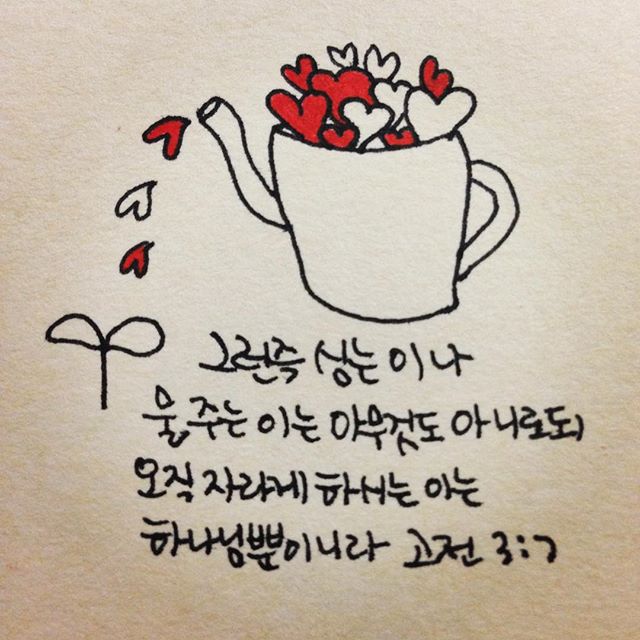 그런즉 심는 이나
물 주는 이는 아무것도 아니로되
오직 자라게 하시는 이는
하나님뿐이니라 고전 3:7